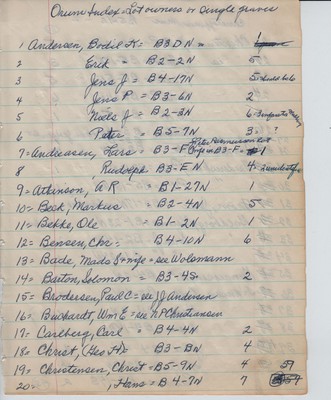 Orum Index = Lot owners or single graves
1 Andersen, Bodil K = B3 D N =
2 Erik = B2-2N 5
3 Jens J = B4-17N 5 should be 6
4 Jens P = B3-6N 2
5 Niels J = B2-3N 6
6 Peter = B5-7N 3 ?
7 = Andreasen, Lars = B3-F 1
8 Rudolph B3-E N 4
9 = Atkinson, A R = B1-27N 1
10 = Beck, Markus = B2-4N 5
11 = Bekke, Ole = B1-2N 1
12 = Bensen, Chr = B4-10N 6
13 = Bade, Mads & wife = see Wolsmann
14 = Barton, Solomon = B3-4S 2
15 = Brodersen, Paul C = see J J Andersen
16 = Burhardt, Wm E = see N P Christiansen
17 = Carlberg, Carl = B4-4N 2
18 = Christ, Geo H = B3-BN 4
19 = Christensen, Christ = B5-9N 4 57
20 = , Hans = B4-7N 7